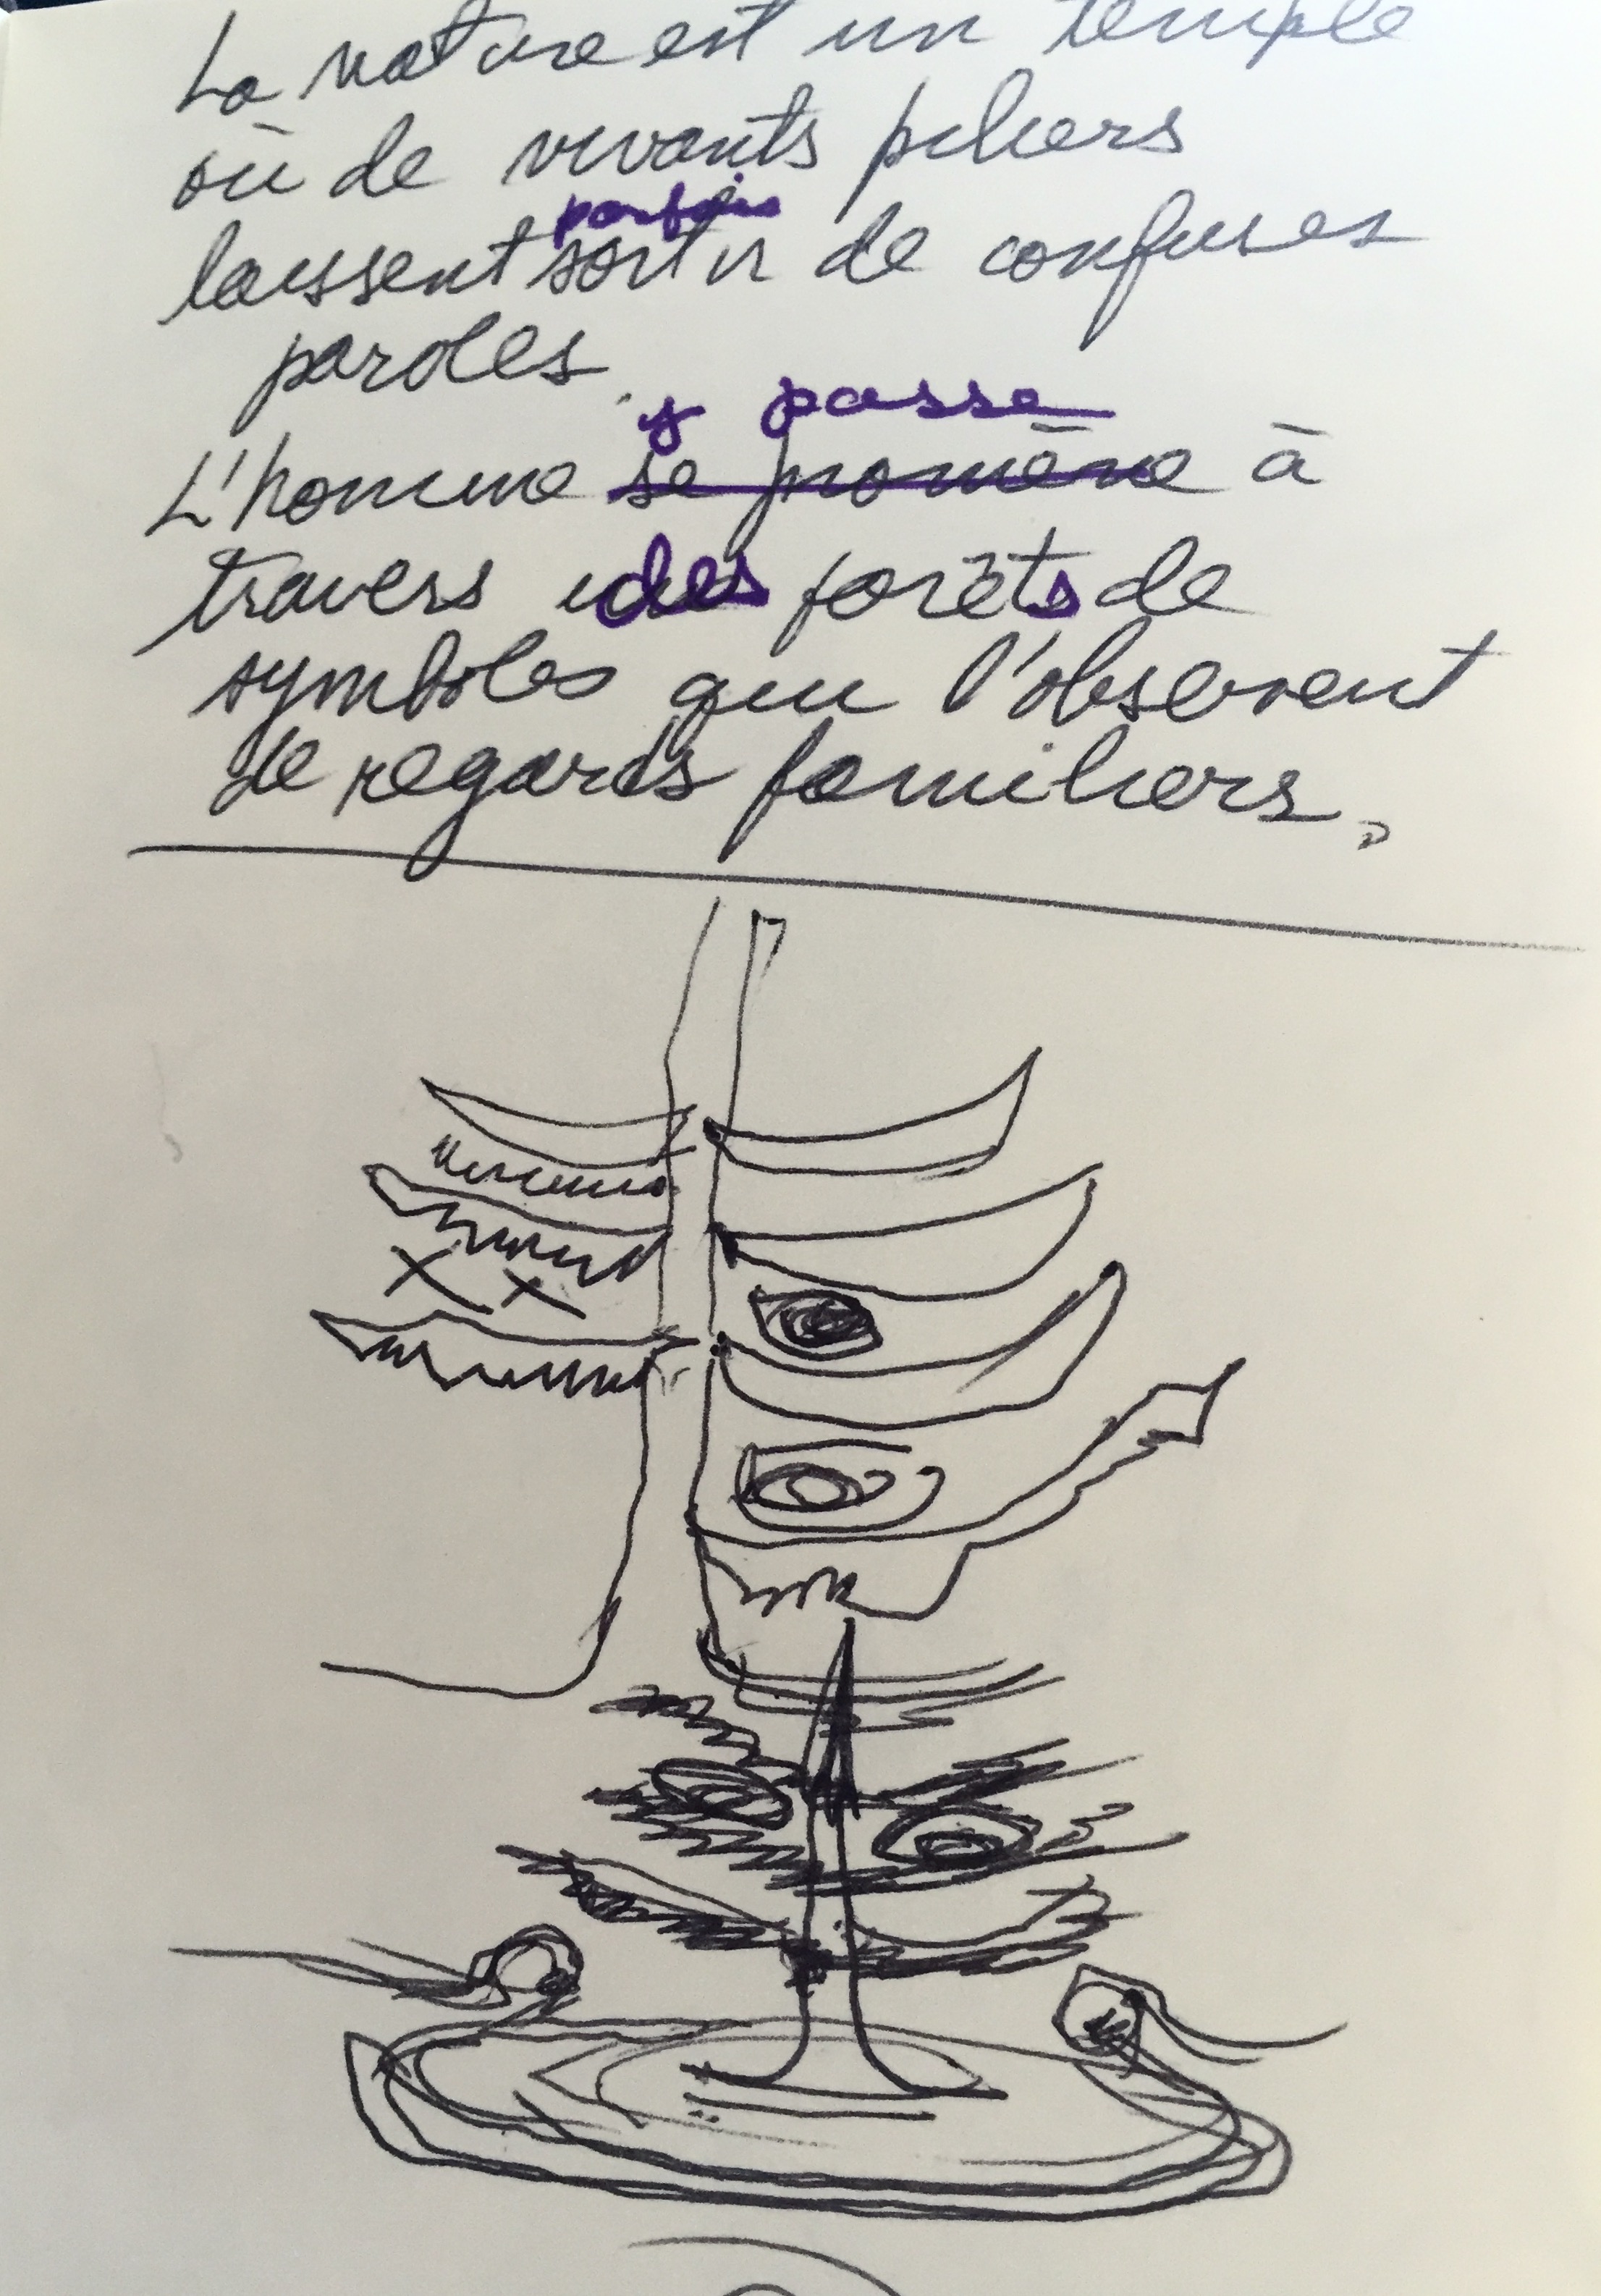 La nature est un temple
où de vivants piliers
parfois
laissent sortir de confuses
paroles.
y passe
L'homme se promène à
travers des forêts de
symboles qui l'observent
de regards familiers.